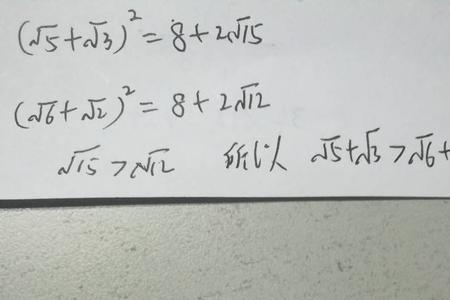 (√5+√3)²=8+2√15
(√6+√2)²=8+2√12
√15>√12 所以 √5+√3>√6+